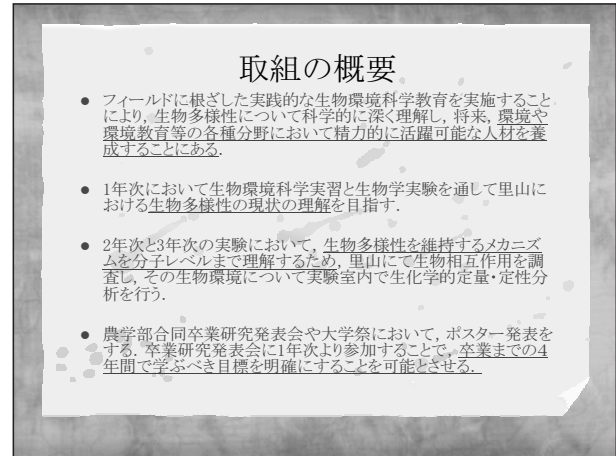 取組の概要
● フィールドに根ざした実践的な生物環境科学教育を実施すること
により, 生物多様性について科学的に深く理解し, 将来, 環境や
環境教育等の各種分野において精力的に活躍可能な人材を養
成することにある.
● 1年次において生物環境科学実習と生物学実験を通して里山に
おける生物多様性の現状の理解を目指す.
● 2年次と3年次の実験において, 生物多様性を維持するメカニズ
ムを分子レベルまで理解するため, 里山にて生物相互作用を調
査し, その生物環境について実験室内で生化学的定量・定性分
析を行う.
● 農学部合同卒業研究発表会や大学祭において, ポスター発表を
する. 卒業研究発表会に1年次より参加することで, 卒業までの4
年間で学ぶべき目標を明確にすることを可能とさせる.